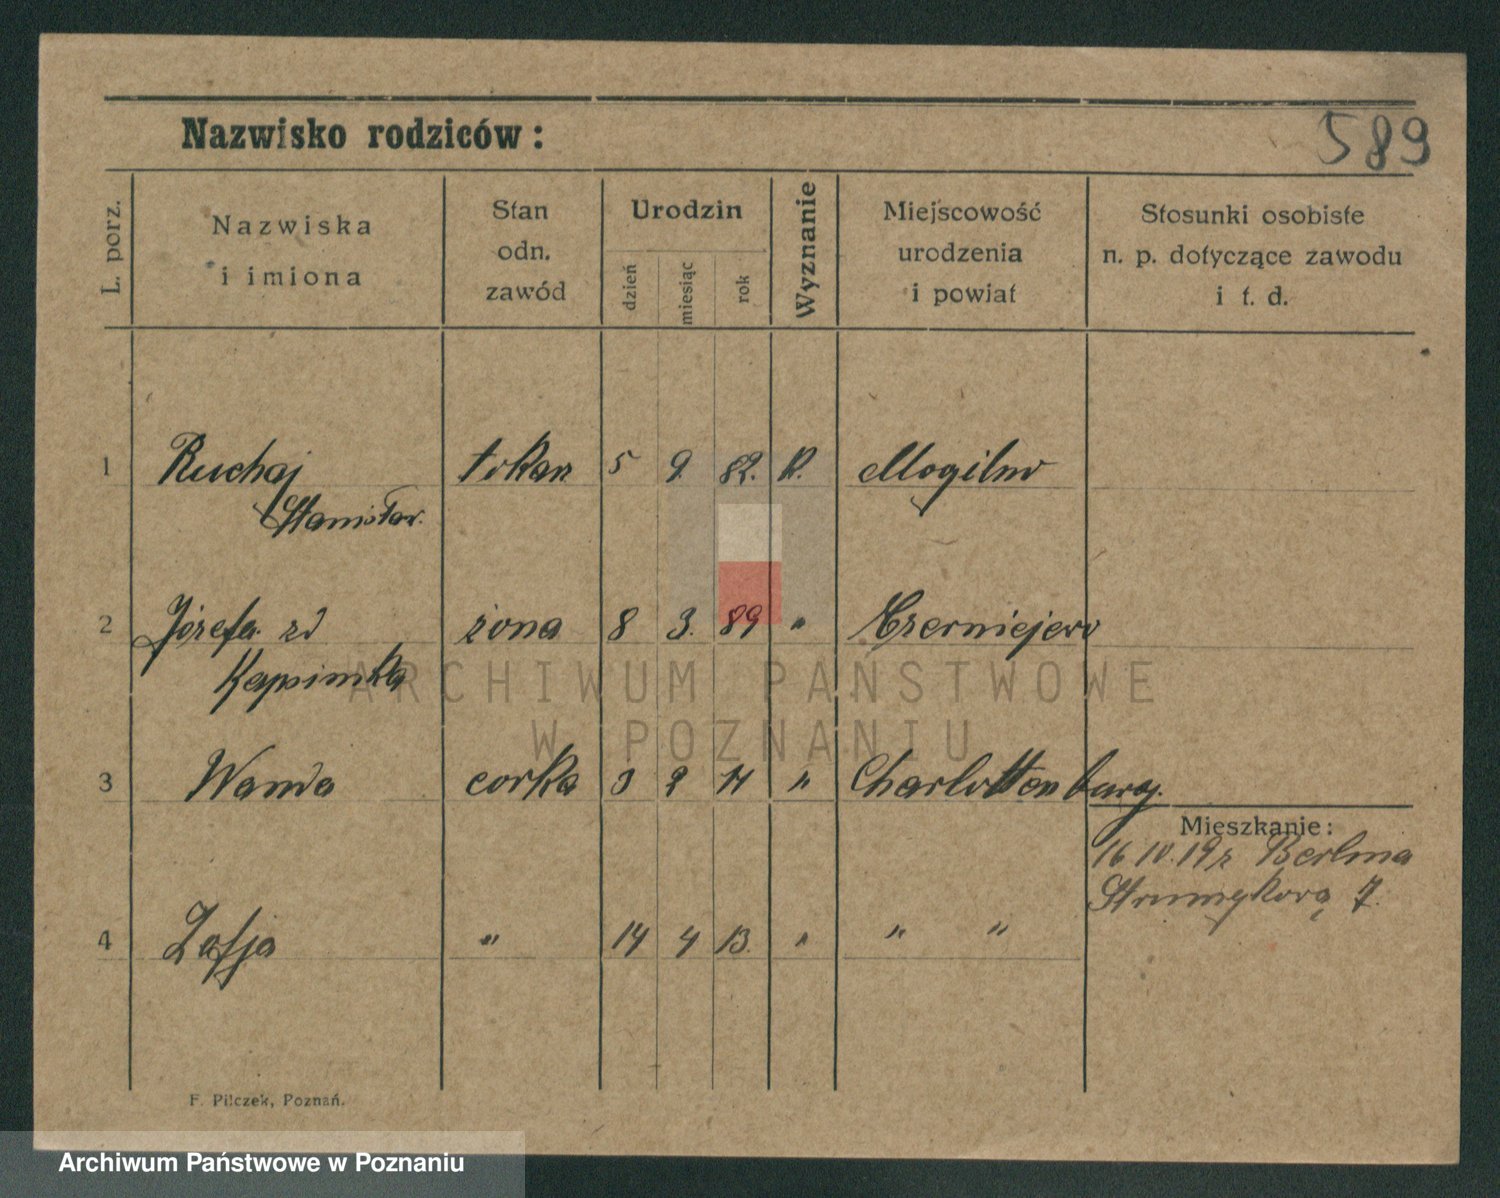 Nazwisko rodziców:
589
L. porz.
Nazwiska
i imiona
Stan
odn.
zawód
Urodzin
dzień
miesiąc
rok
Wyznanie
Miejscowość
urodzenia
i powiat
Stosunki osobiste
n. p. dotyczące zawodu
i t. d.
1 Ruchaj tokarz 5 9. 82. k. Mogilno
Stanisław.
2 Józefa zd żona 8 3. 89 " Czerniejewo
3 Wanda corka 3 2 11 " Charlottenburg.
Mieszkanie:
16 IV. 19 z Berlina
Strumykową 7.
4 Zofja " 14 4 13. " " "
F. Pilczek, Poznań.
ARCHIWUM PAŃSTWOWE
W POZNANIU
Archiwum Państwowe w Poznaniu